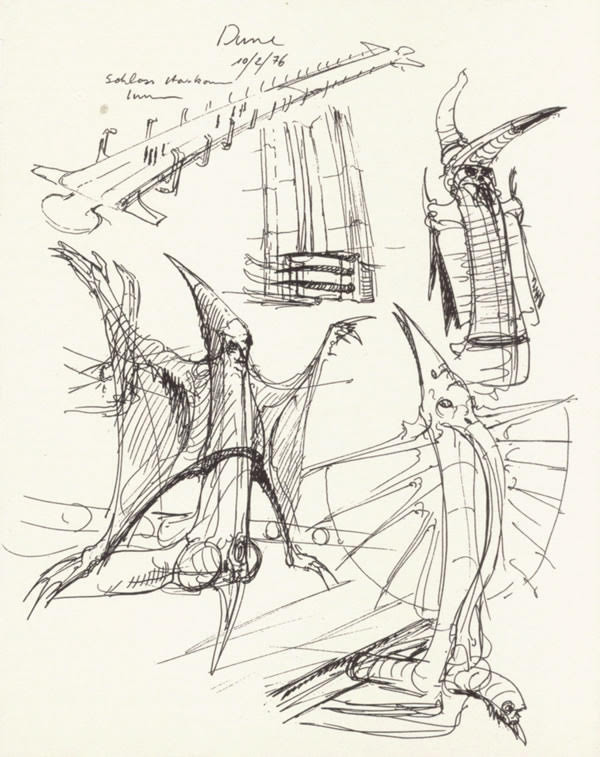 Dune
10/2/76
Schloss Harkonn
Innen